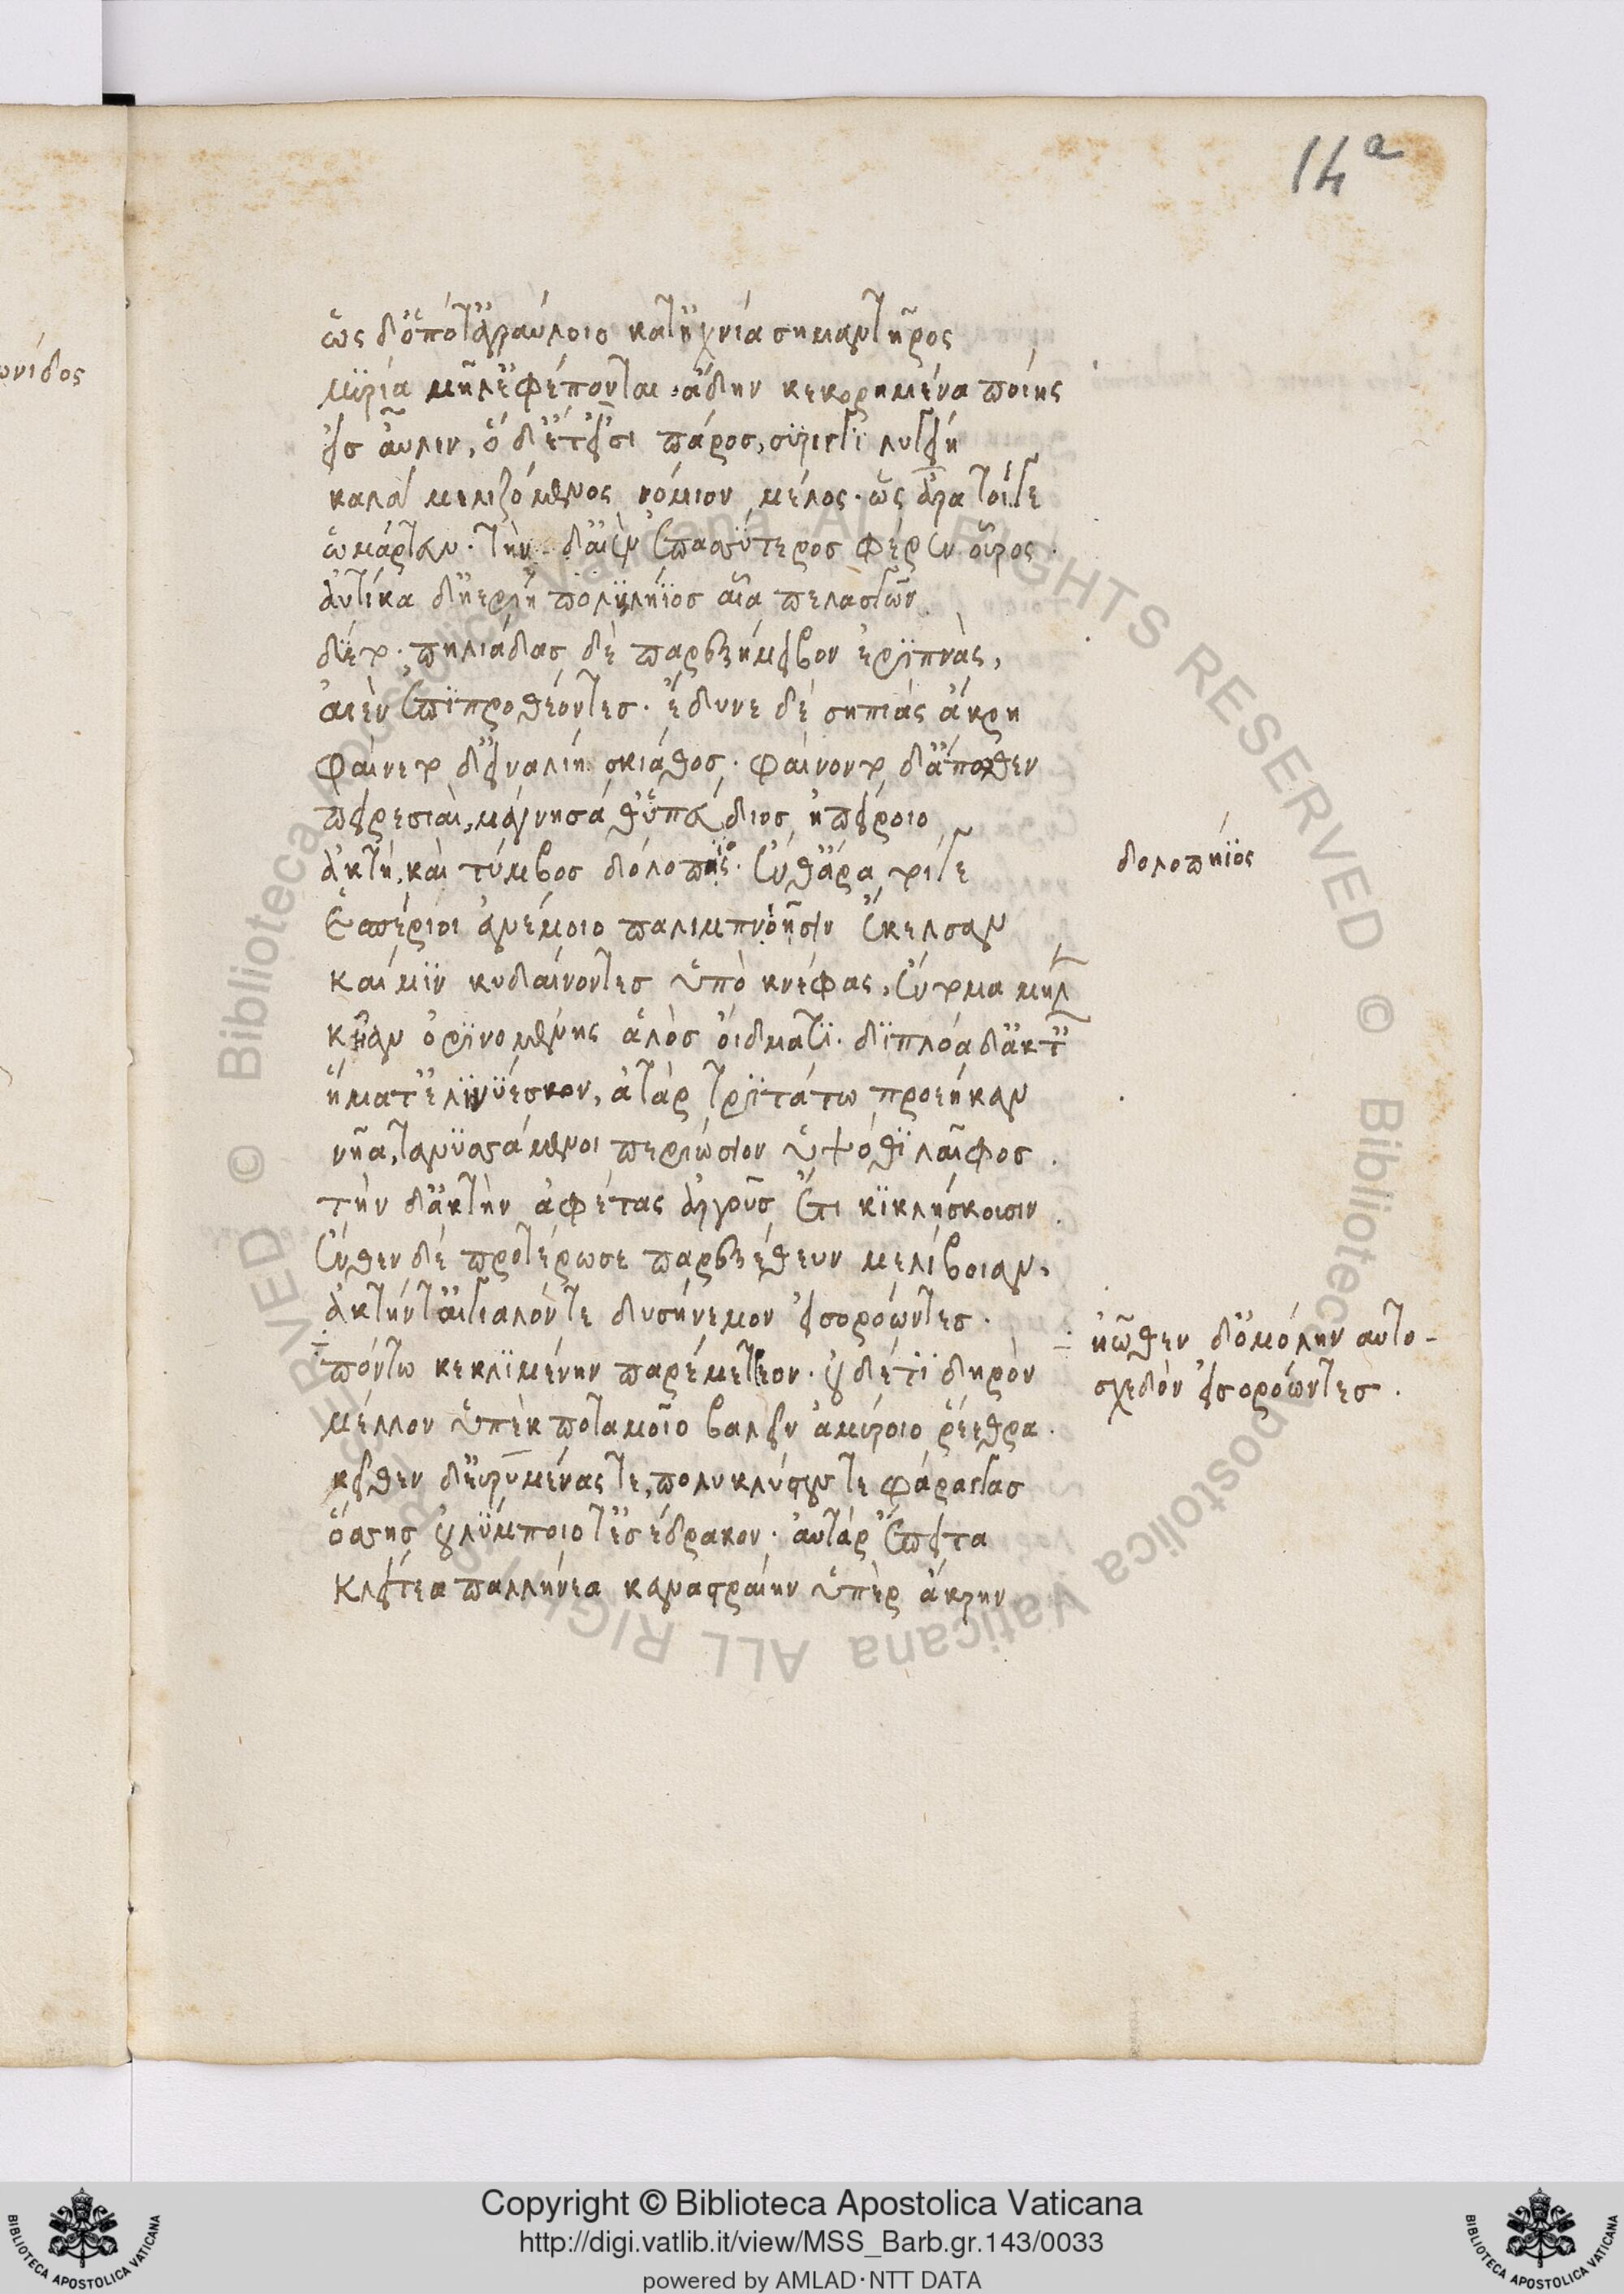 14a
ὡς δ' ὁπότ' ἀγραύλοιο κατ' ἴχνια σημαντῆρος
μυρία μῆλ' ἐφέπονται ἄδην κεκορημένα ποίης
εἰς αὖλιν, ὁ δέ τ' εἶσι πάρος, σύριγγι λιγείῃ
καλὰ μελιζόμενος νόμιον μέλος. ὣς ἄρα τοίγε
ὡμάρτευν. τὴν δ' αἰὲν ἐπασσύτερος φέρεν οὖρος.
αὐτίκα δ' ἠερίη πολυλήϊος αἶα πελασγῶν
δύετο. πηλιάδας δὲ παρεξήμειβον ἐρίπνας,
αἰὲν ἐπιπροθέοντες. ἔδυνε δὲ σηπιὰς ἄκρη
φαίνετο δ' εἰναλίη σκιάθος. φαίνοντο δ' ἄποθεν
πειρεσιαὶ, μάγνησά θ' ὑπεύδιος ἠπείροιο
ἀκτὴ, καὶ τύμβος δολοπῆς. ἔνθ' ἄρα τοίγε
δολοπηϊος
ἑσπέριοι ἀνέμοιο παλιμπνοίῃσιν ἔκελσαν
καί μιν κυδαίνοντες ὑπὸ κνέφας, ἔντομα μήλ
κῆαν ὀρινομένης ἁλὸς οἴδματι. διπλόα δ' ἀκτ
ἤματ' ἐλινύεσκον, ἀτὰρ τριτάτω προέηκαν
νῆα, τανυσσάμενοι περιώσιον ὑψόθι λαῖφος.
τὴν δ' ἀκτὴν ἀφέτας ἀργοῦς ἔτι κικλήσκουσιν.
ἔνθεν δὲ προτέρωσε παρεξέθεον μελίβοιαν,
ἀκτήν τ' αἰγιαλόν τε δυσήνεμον εἰσορόωντες.
ἠῶθεν δ' ὁμόλην αὐτο-
σχεδὸν εἰσορόωντες.
πόντω κεκλιμένην παρεμέτρεον. οὐδέ τι δηρὸν
μέλλον ὑπὲκ ποταμοῖο βαλεῖν ἀμύροιο ῥέεθρα.
κεῖθεν δ' εὐρυμένας τε, πολυκλύστους τε φάραγγας
ὄσσης οὐλύμποιό τ' ἐσέδρακον. αὐτὰρ ἔπειτα
κλείτεα παλλήνεα καναστραίην ὑπὲρ ἄκρην
ωνίδος
Copyright © Biblioteca Apostolica Vaticana
http://digi.vatlib.it/view/MSS_Barb.gr.143/0033
powered by AMLAD·NTT DATA
BIBLIOTECA APOSTOLICA VATICANA
BIBLIOTECA APOSTOLICA VATICANA
© Biblioteca Apostolica Vaticana ALL RIGHTS RESERVED © Biblioteca Apostolica Vaticana ALL RIGHTS RESERVED